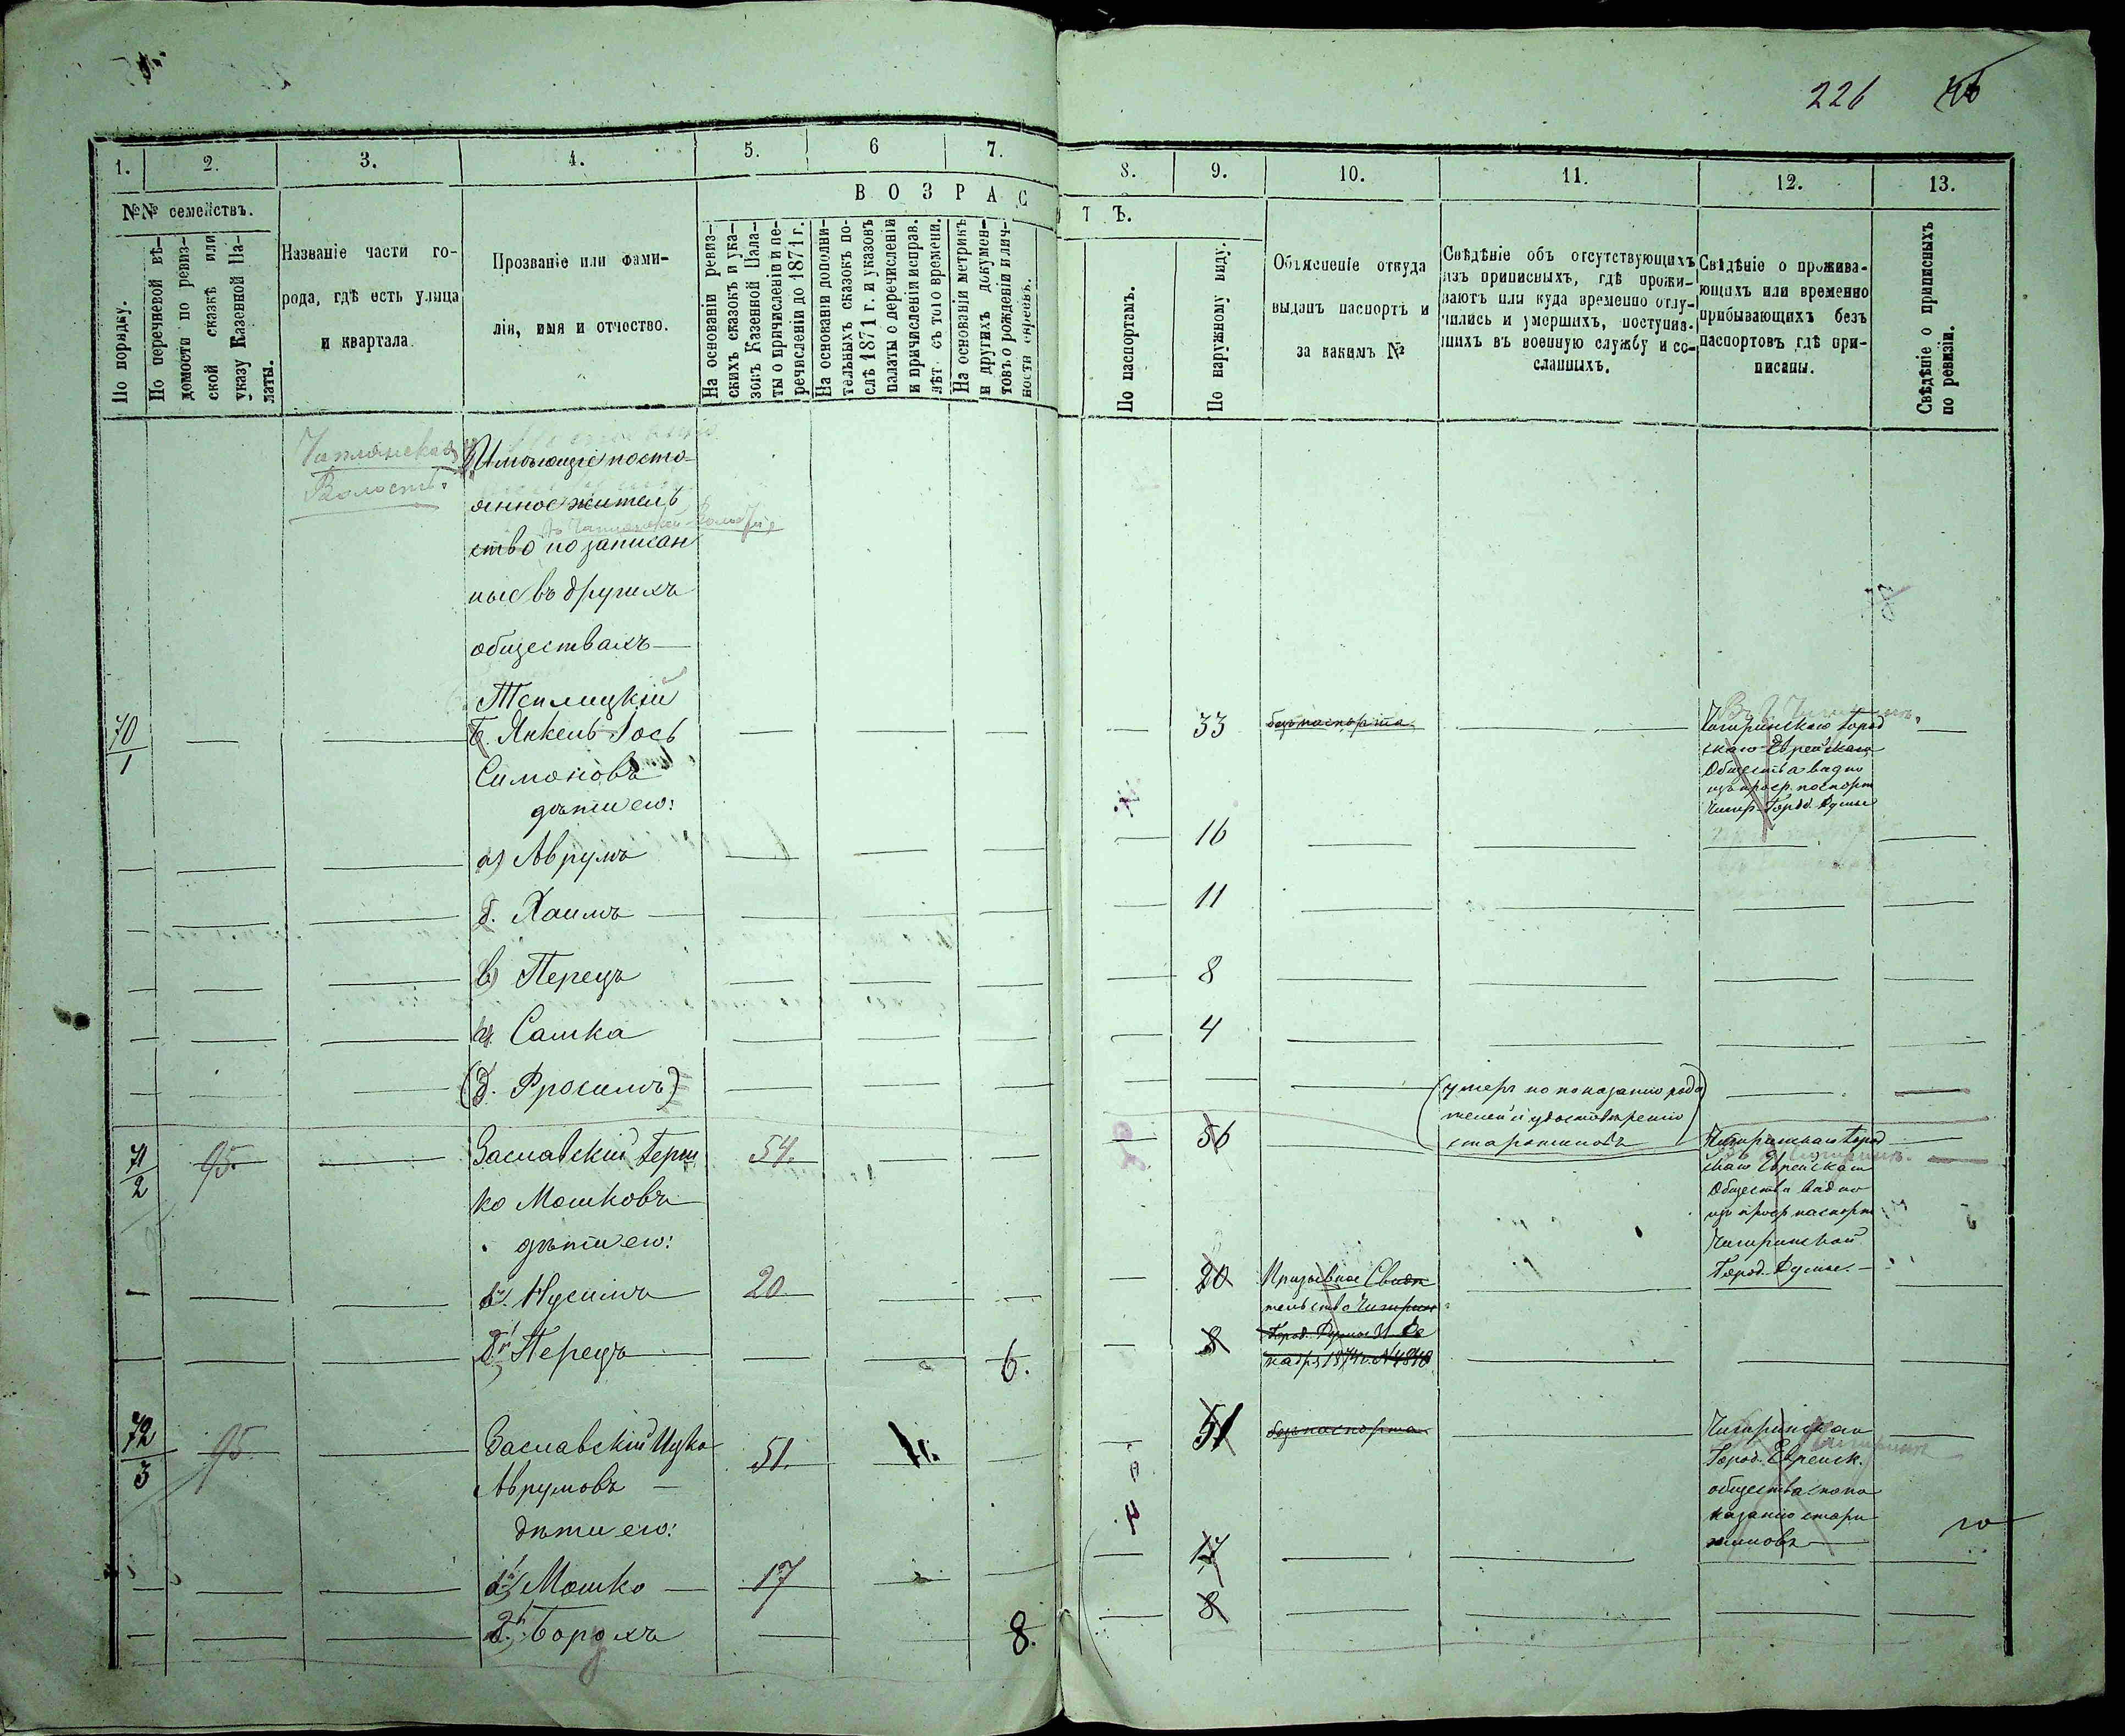 226
1.
2.
3.
4.
5.
6
7.
8.
9.
10.
11.
12.
13.
№№ семействъ.
По порядку.
По перечневой вѣ-
домости по ревиз-
ской сказкѣ или
указу Казенной Па-
латы.
Названіе части го-
рода, гдѣ есть улица
и квартала.
Прозваніе или фами-
лія, имя и отчество.
ВОЗРАС
ТЪ.
На основаніи ревиз-
скихъ сказокъ и ука-
зокъ Казенной Пала-
ты о причисленіи и пе-
речисленіи до 1871 г.
На основаніи дополни-
тельныхъ сказокъ по-
слѣ 1871 г. и указовъ
палаты о перечисленіи
и причисленіи исправ.
лѣт. съ того времени.
На основаніи метрикъ
и другихъ докумен-
товъ о рожденіи и лич-
ности евреевъ.
По паспортамъ.
По наружному виду.
Объясненіе откуда
выданъ паспортъ и
за какимъ №
Свѣдѣніе объ отсутствующихъ
изъ приписныхъ, гдѣ прожи-
ваютъ или куда временно отлу-
чились и умершихъ, поступив-
шихъ въ военную службу и со-
сланныхъ.
Свѣдѣніе о прожива-
ющихъ или временно
прибывающихъ безъ
паспортовъ гдѣ при-
писаны.
Свѣдѣніе о приписныхъ
по ревизіи.
Волость.
Имѣющіе посто-
янное житель
ство но записан
ные въ другихъ
обществахъ
Теплицкій
70
1
Янкель Іось
33
безъ паспорта
Чигиринскаго Город
скаго Еврейскаго
Общества видно
изъ проср. паспорт
Чигир. Город. Думы
Симоновъ
дѣти его:
а) Аврумъ
16
б. Хаимъ
11
в) Перецъ
8
Сашка
4
(д. Фроимъ)
(умеръ по показанію роди
телей и удостовѣренію
старшиновъ)
71
2
95.
Заславскій Герш
ко Мошковъ
54.
56
Чигиринскаго Город
скаго Еврейскаго
Общества видно
изъ проср паспорт
Чигиринской
Город. Думы.
дѣти его:
Нусимъ
20
20
Призывное Свидѣ
тельство Чигирин
Город. Думы 31 Де
кабря 1874 г. № 4848
Перецъ
6.
8
72
3
95
Заславскій Ицко
Аврумовъ
51.
51
безъ паспорта
Чигиринскаго
Город. Еврейск.
общества по по
казанію старш
шиновъ
дѣти его:
Мошко
17
17
Борохъ
8.
8